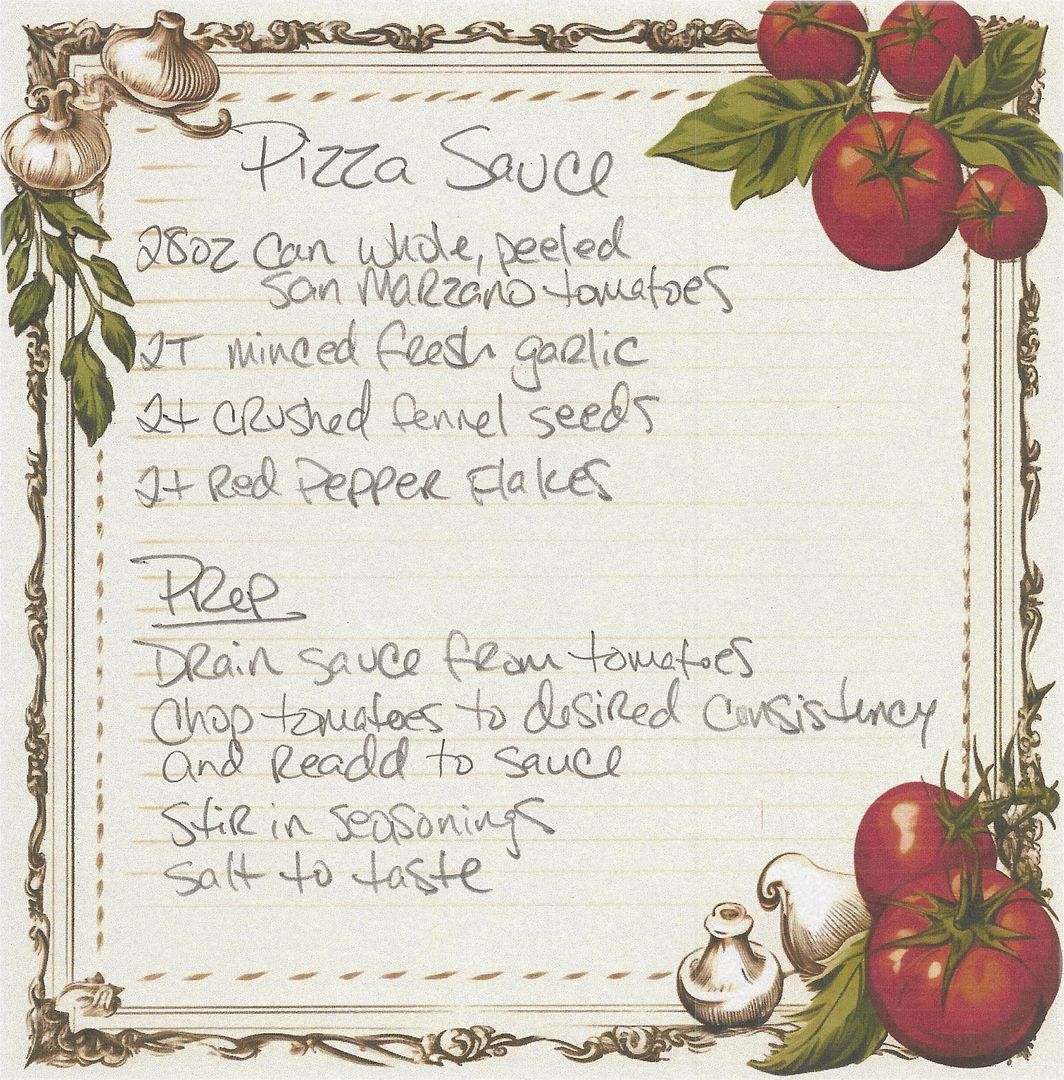 Pizza Sauce
28oz can whole, peeled
San Marzano tomatoes
2T minced fresh garlic
2t crushed fennel seeds
2t Red Pepper Flakes
Prep
Drain sauce from tomatoes
Chop tomatoes to desired consistency
and readd to sauce
Stir in seasonings
Salt to taste